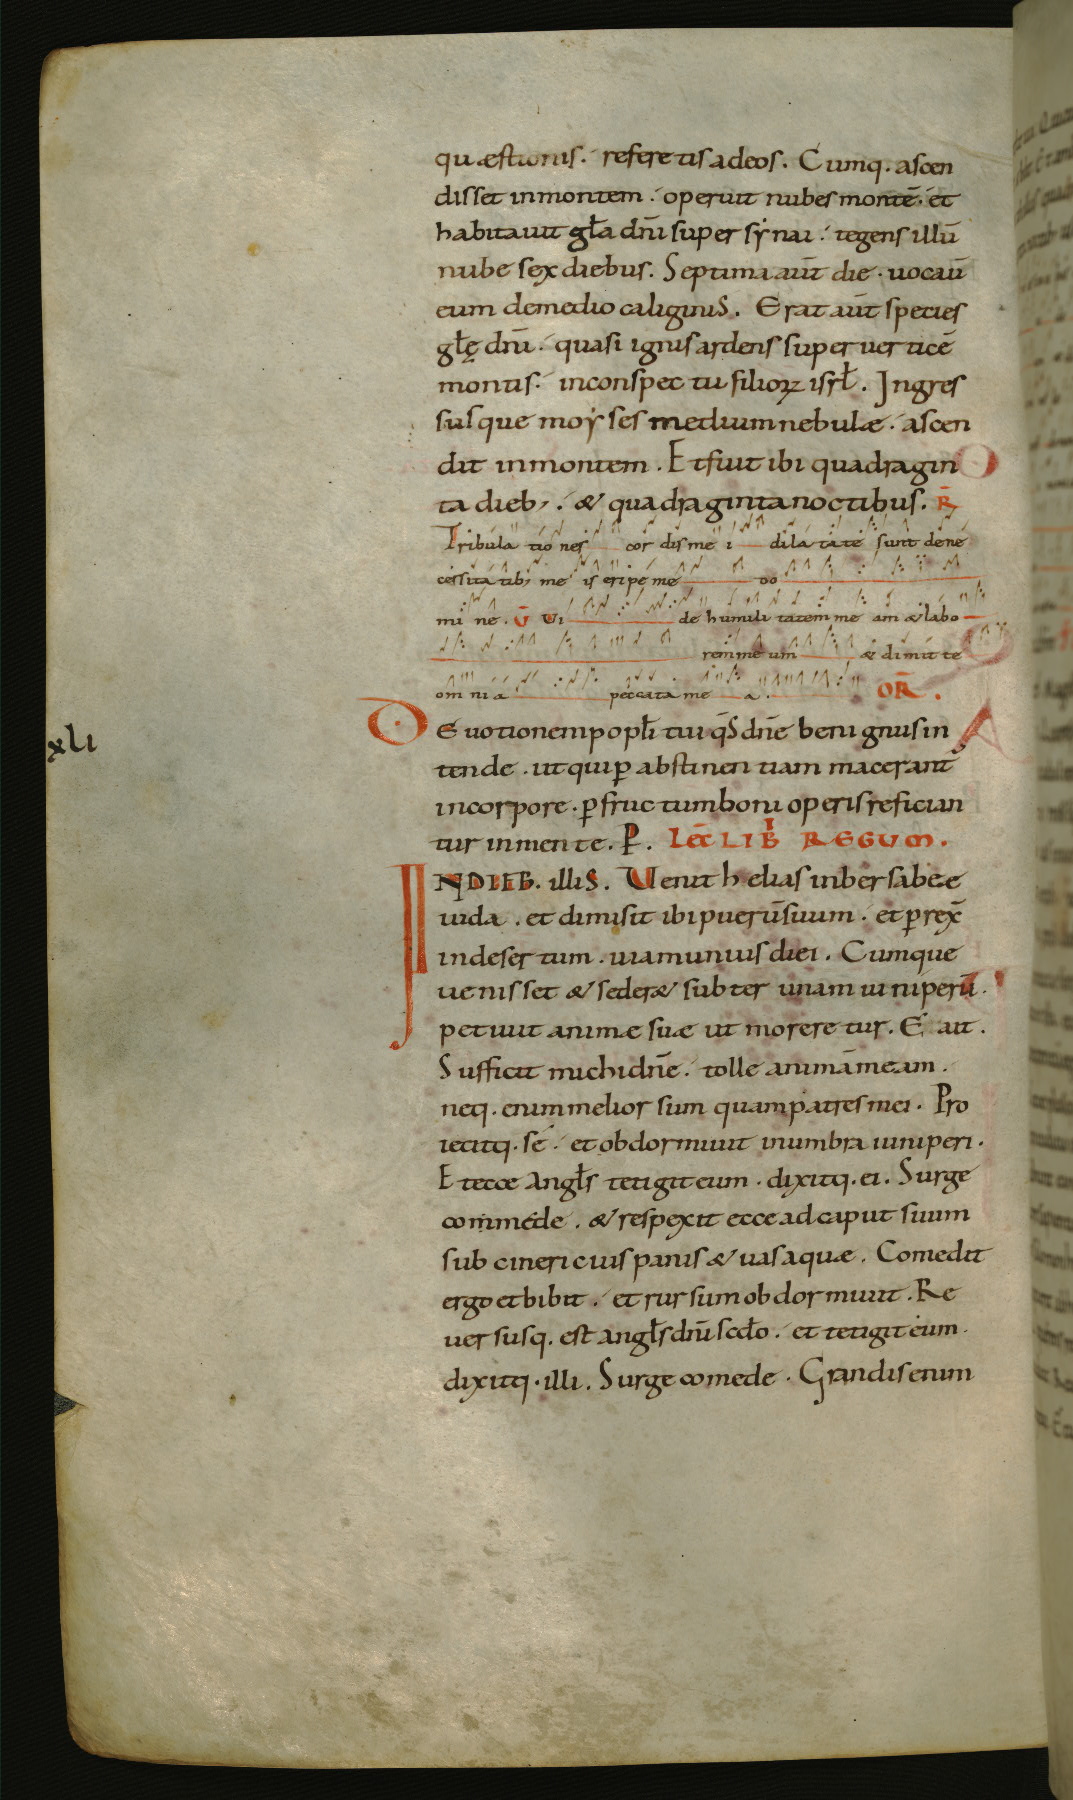 quæstionis. referetis ad eos. Cumq. ascen
disset in montem. operuit nubes montē. et
habitauit gła dñi super sẏnai. tegens illū
nube sex diebus. Septima aūt die. uocaū
eum de medio caliginis. Erat aūt species
głę dñi. quasi ignis ardens super uerticē
montis. in conspectu filioꝝ isrł. Ingres
susque moẏses medium nebulæ. ascen
dit in montem. Et fuit ibi quadragin
ta dieb;. & quadraginta noctibus. R̄
Tribula tio nes cor dis me i dila ta te sunt de ne
cessita tib; me is eripe me do
mi ne. V̄ Vi de humili tatem me am & labo
rem me um & dimit te
om ni a peccata me a. OR̄.
Deuotionem popłi tui q̄s dñe benignus in
xli
tende. ut qui ꝑ abstinentiam macerant̄
in corpore. ꝑ fructum boni operis refician
tur in mente. P̄. Lec̄ LIB̄ I REGUM.
IN DIEB. illis. Uenit helias in bersabee
iuda. et dimisit ibi puerū suum. et ꝑrex̄
in desertum. uiam unius diei. Cumque
uenisset & seder& subter unam iuniperū.
petiuit animæ suæ ut moreretur. E ait.
Sufficit michi dñe. tolle animā meam.
neq. enim melior sum quam patres mei. Pro
iecitq. se. et obdormiuit in umbra iuniperi.
Et ecce angłs tetigit eum. dixitq. ei. Surge
commede. & respexit ecce ad caput suum
sub cinericius panis & uas aquæ. Comedit
ergo et bibit. et rursum obdormiuit. Re
uersusq. est angłs dñi scđo. et tetigit eum.
dixitq. illi. Surge comede. Grandis enim